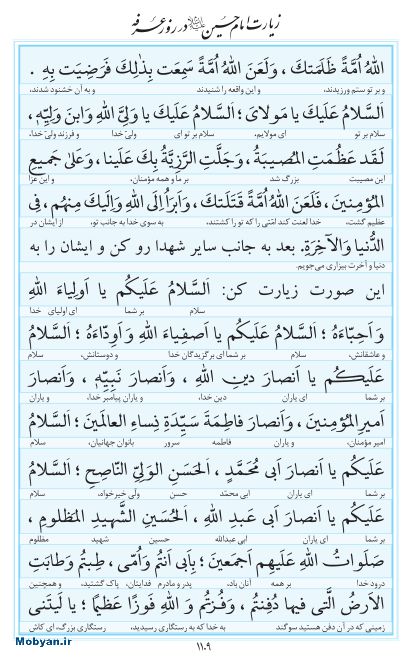 زیارت امام حسین علیه‌السلام در روز عرفه
اللهُ اُمَّةً ظَلَمَتكَ ، وَلَعَنَ اللهُ اُمَّةً سَمِعَت بِذٰلِكَ فَرَضِيَت بِهِ .
و بر تو ستم ورزیدند، و این واقعه را شنیدند و به آن خشنود شدند،
اَلسَّلامُ عَلَيكَ يا مَولاىَ ؛ اَلسَّلامُ عَلَيكَ يا وَلِىَّ اللهِ وَابنَ وَلِيِّهِ،
سلام بر تو ای مولایم، سلام بر تو ای ولیّ خدا و فرزند ولیّ خدا،
لَقَد عَظُمَتِ المُصيبَةُ ، وَجَلَّتِ الرَّزِيَّةُ بِكَ عَلَينا، وَعَلىٰ جَميعِ
این مصیبت بزرگ شد بر ما و همه مؤمنان، و این عزا
المُؤمِنينَ، فَلَعَنَ اللهُ اُمَّةً قَتَلَتكَ، وَاَبرَأُ اِلَى اللهِ وَاِلَيكَ مِنهُم، فِى
عظیم گشت، خدا لعنت کند امّتی را که تو را کشتند، به سوی خدا به جانب تو، از ایشان در
الدُّنيا وَالآخِرَةِ. بعد به جانب سایر شهدا رو کن و ایشان را به
دنیا و آخرت بیزاری می‌جویم.
این صورت زیارت کن: اَلسَّلامُ عَلَيكُم يا اَولِياءَ اللهِ
سلام بر شما ای اولیای خدا
وَ اَحِبّاءَهُ ؛ اَلسَّلامُ عَلَيكُم يا اَصفِياءَ اللهِ وَ اَوِدّاءَهُ ؛ اَلسَّلامُ
و عاشقانش، سلام بر شما ای برگزیدگان خدا و دوستانش، سلام
عَلَيكُم يا اَنصارَ دينِ اللهِ ، وَاَنصارَ نَبِيِّهِ ، وَاَنصارَ
بر شما ای یاران دین خدا، و یاران پیامبر خدا، و یاران
اَميرِالمُؤمِنينَ، وَاَنصارَ فاطِمَةَ سَيِّدَةِ نِساءِ العالَمينَ؛ اَلسَّلامُ
امیر مؤمنان، و یاران فاطمه سرور بانوان جهانیان، سلام
عَلَيكُم يا اَنصارَ اَبى مُحَمَّدٍ ، اَلحَسَنِ الوَلِىِّ النّاصِحِ ؛ اَلسَّلامُ
بر شما ای یاران ابی محمّد حسن ولیّ خیرخواه، سلام
عَلَيكُم يا اَنصارَ اَبى عَبدِ اللهِ ، اَلحُسَينِ الشَّهيدِ المَظلومِ ،
بر شما ای یاران ابی عبدالله حسین شهید مظلوم
صَلَواتُ اللهِ عَلَيهِم اَجمَعينَ ؛ بِاَبى اَنتُم وَاُمّى، طِبتُم وَطابَتِ
درود خدا بر همه آنان باد، پدر و مادرم فدایتان، پاک گشتید، و همچنین
الاَرضُ الَّتى فيها دُفِنتُم ، وَفُزتُم وَ اللهِ فَوزًا عَظيمًا ؛ يا لَيتَنى
زمینی که در آن دفن هستید سوگند به خدا که به رستگاری رسیدید، رستگاری بزرگ، ای کاش
۱۱۰۹
Mobyan.ir